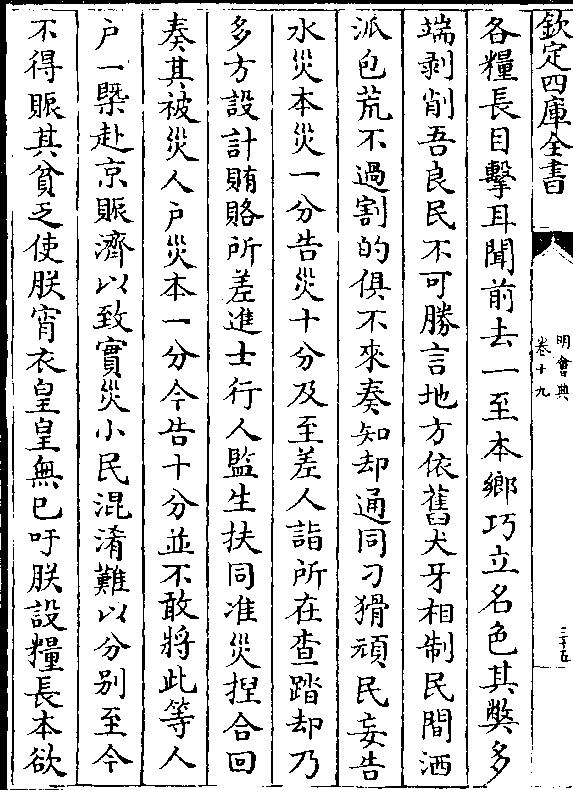 欽定四庫全書
明會典
卷十九
二十五
各糧長目擊耳聞前去一至本鄉巧立名色其獘多
端剥削吾良民不可勝言地方依舊犬牙相制民間洒
派包荒不過割的俱不來奏知却通同刁猾頑民妄告
水災本災一分告災十分及至差人詣所在查踏却乃
多方設計賄賂所差進士行人監生扶同准災揑合回
奏其被災人户災本一分今告十分並不敢將此等人
户一槩赴京賑濟以致實災小民混淆難以分别至今
不得賑其貧乏使朕宵衣皇皇無已吁朕設糧長本欲